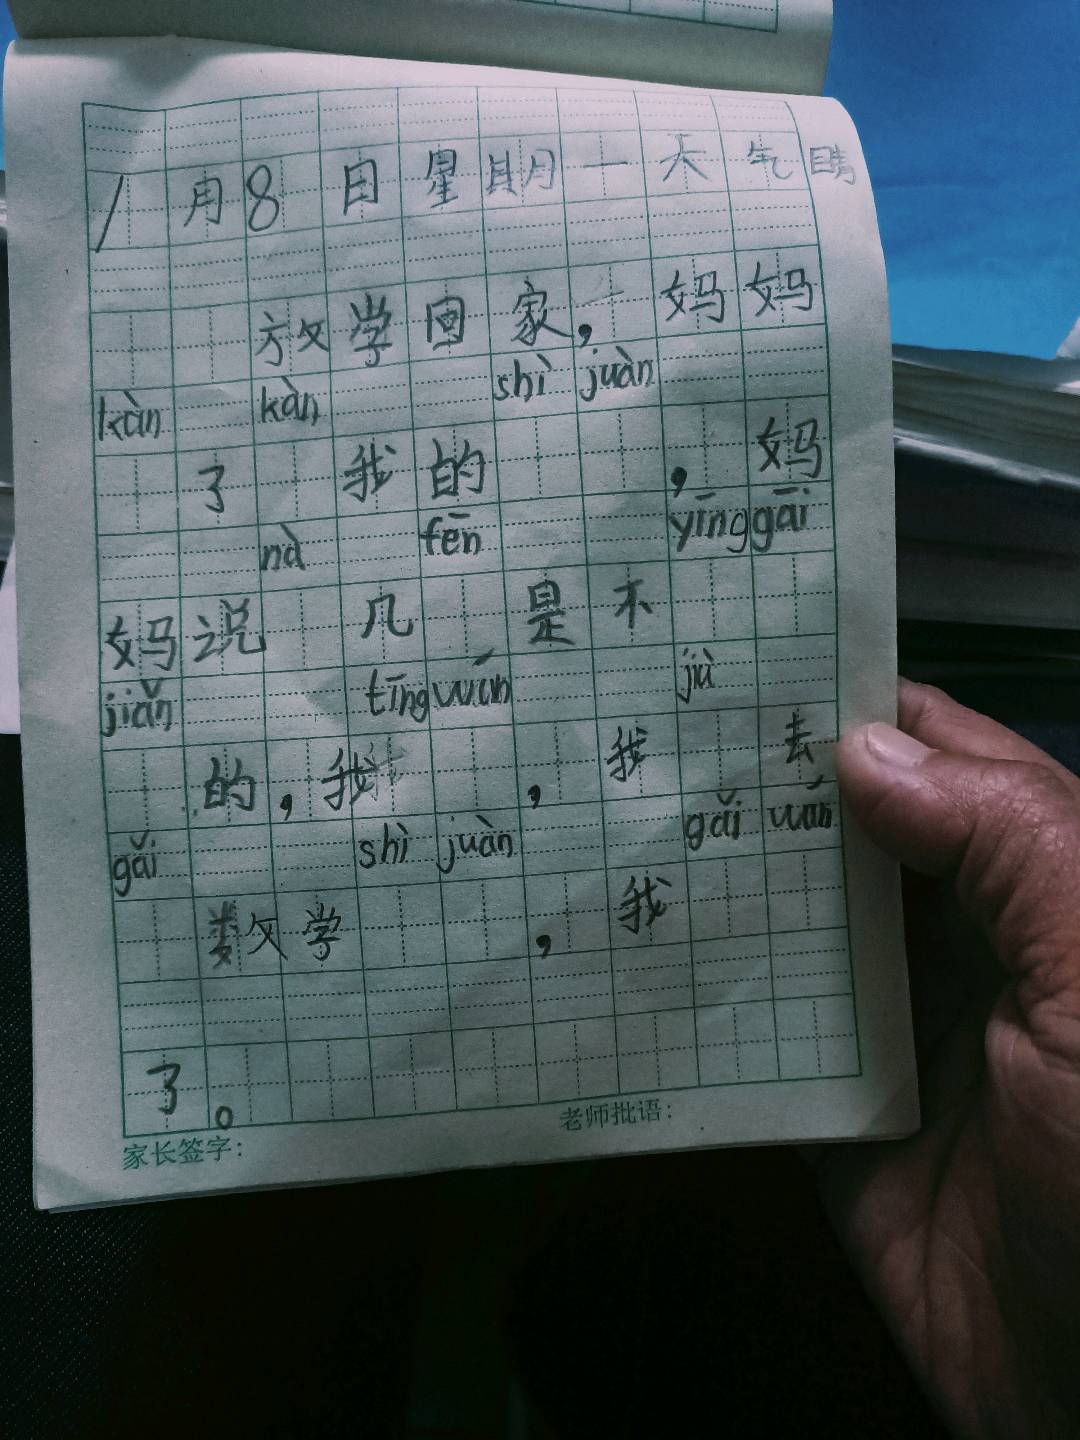 1月8日星期一天气晴
放学回家，妈妈
kàn kàn shì juàn
了我的，妈
nà fēn yīng gāi
妈说几是不
jiǎn tīng wán jiù
的，我，我去
gǎi shì juàn gǎi wán
数学，我
了。
家长签字：老师批语：